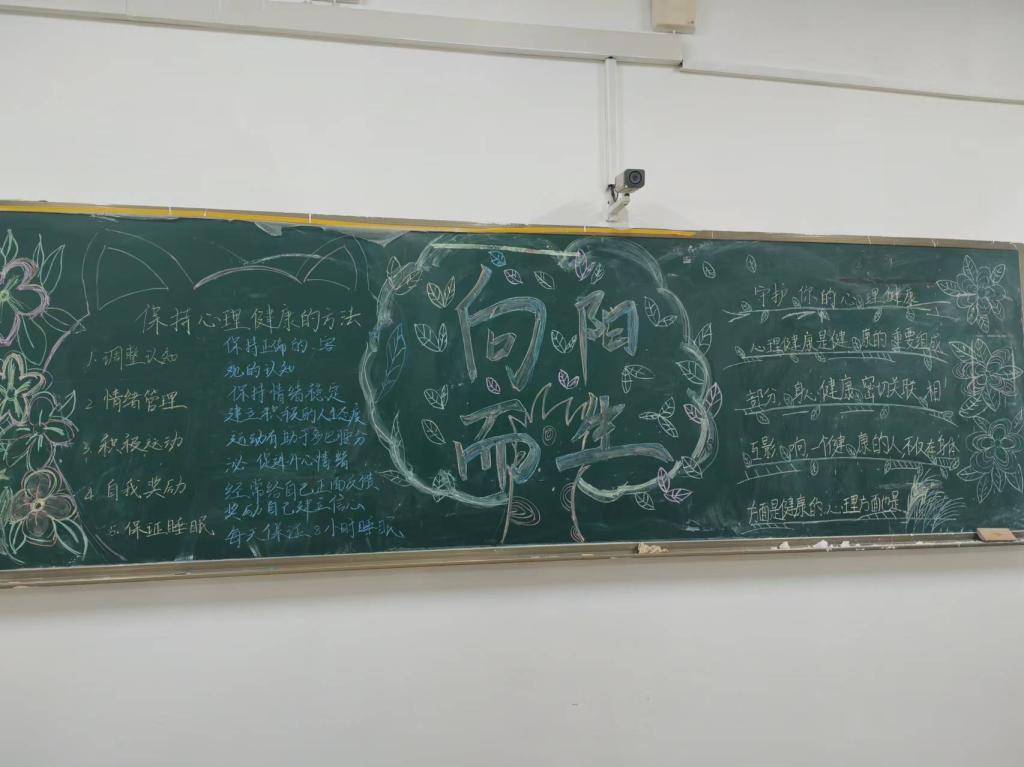 保持心理健康的方法
1.调整认知
保持正确的、客
观的认知
2.情绪管理
保持情绪稳定
建立积极的人生态度
3.积极运动
运动有助于多巴胺分
泌 促进开心情绪
4.自我奖励
经常给自己正面反馈
奖励自己建立信心
5.保证睡眠
每天保证8小时睡眠
向阳
而生
守护你的心理健康
心理健康是健康的重要组成
部分,身 健康密切关联 相
互影响 一个健康的人不仅在身体
方面是健康的心理方面也是